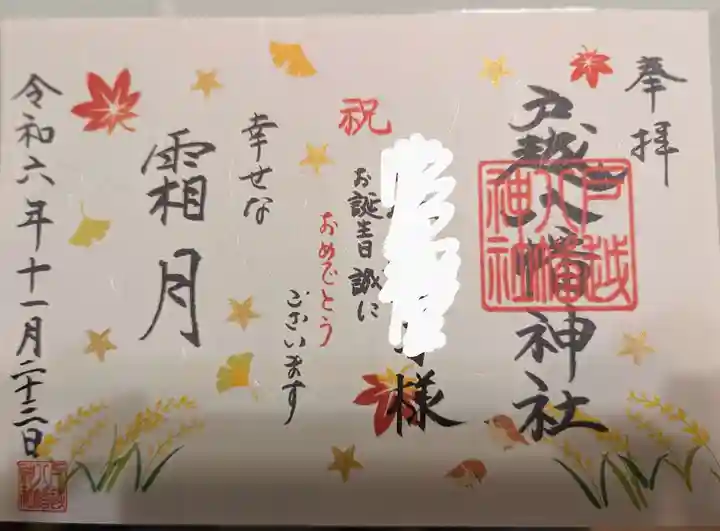 奉拝
戸越八幡神社
戸越
八幡
神社
祝
様
お誕生日誠に
おめでとう
ございます
幸せな
霜月
令和六年十一月二十三日
戸越
八幡
神社